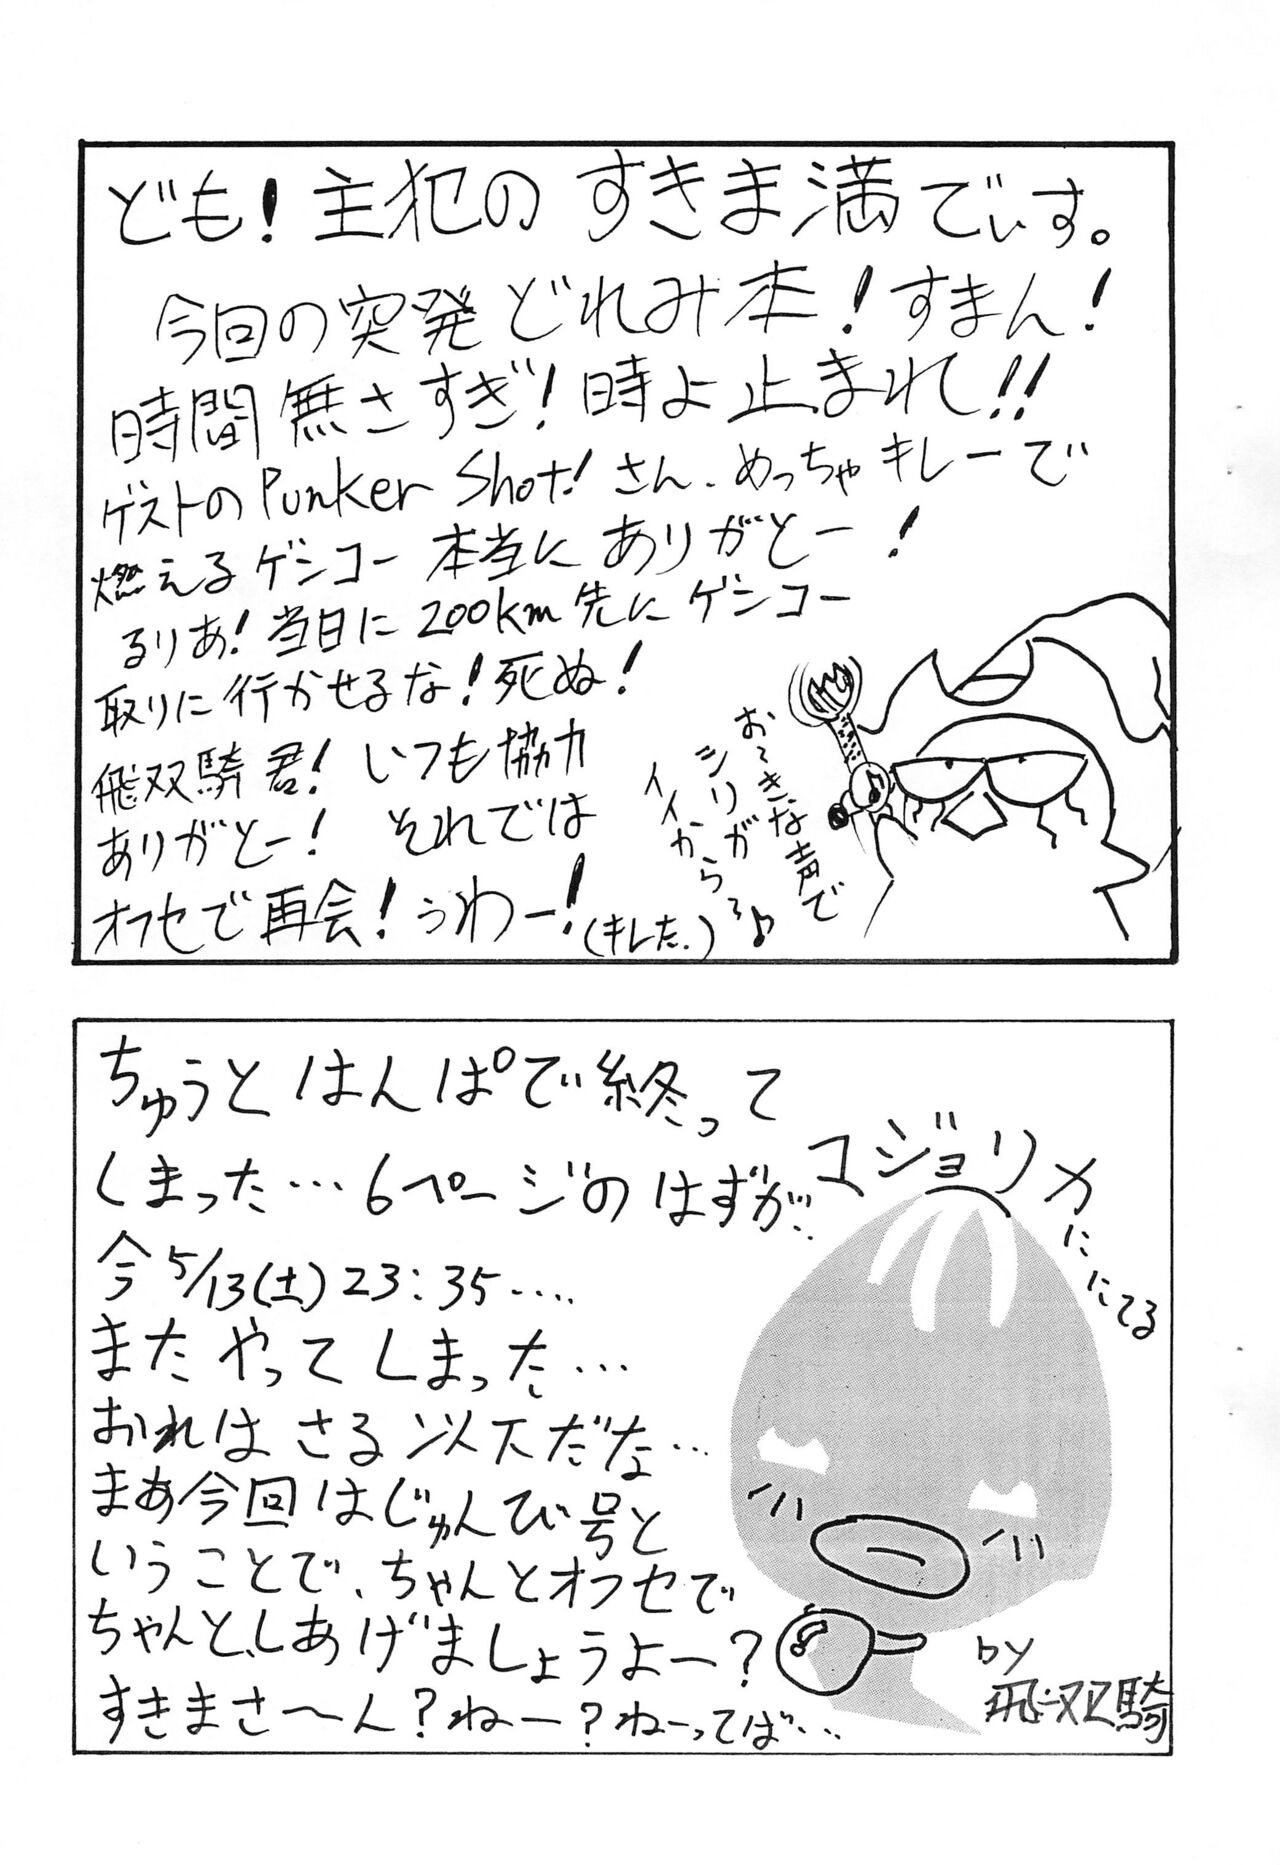 ども!主犯のすきま満でぃす。
今回の突発どれみ本!すまん!
時間無さすぎ!時よ止まれ!!
ゲストのPunker Shot!さん、めっちゃキレーで
燃えるゲンコー本当にありがとー!
るりあ!当日に200km先にゲンコー
取りに行かせるな!死ぬ!
飛双騎君!いつも協力
ありがとー!それでは
オフセで再会!うわー!(キレた.)
おゝきな声で
シリガ
イイからろ♪
ちゅうとはんぱで終って
しまった…6ページのはずが…
今5/13(土)23:35….
またやってしまった…
おれはさる以下だな…
まあ今回はじゅんび号と
いうことで、ちゃんとオフセで
ちゃんと、しあげましょうよー?
すきまさ〜ん?ねー?ねーってば…
マジョリカににてる
by
飛双騎